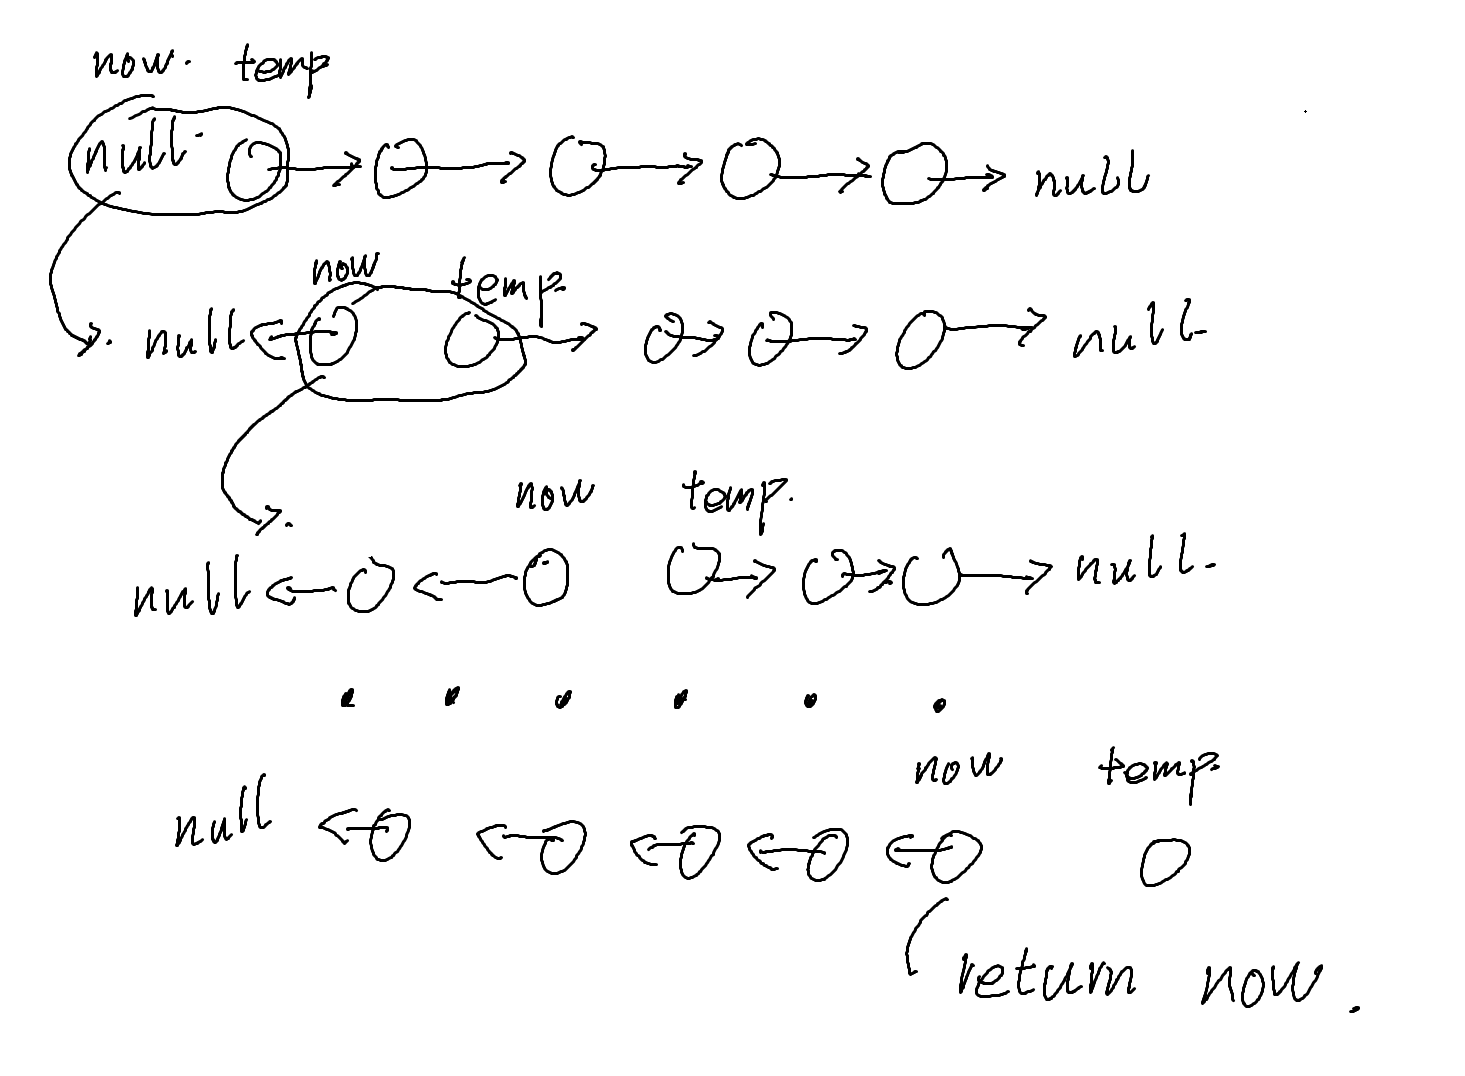 now. temp
null. null
now temp.
null null
now temp.
null null.
now temp.
null
return now.